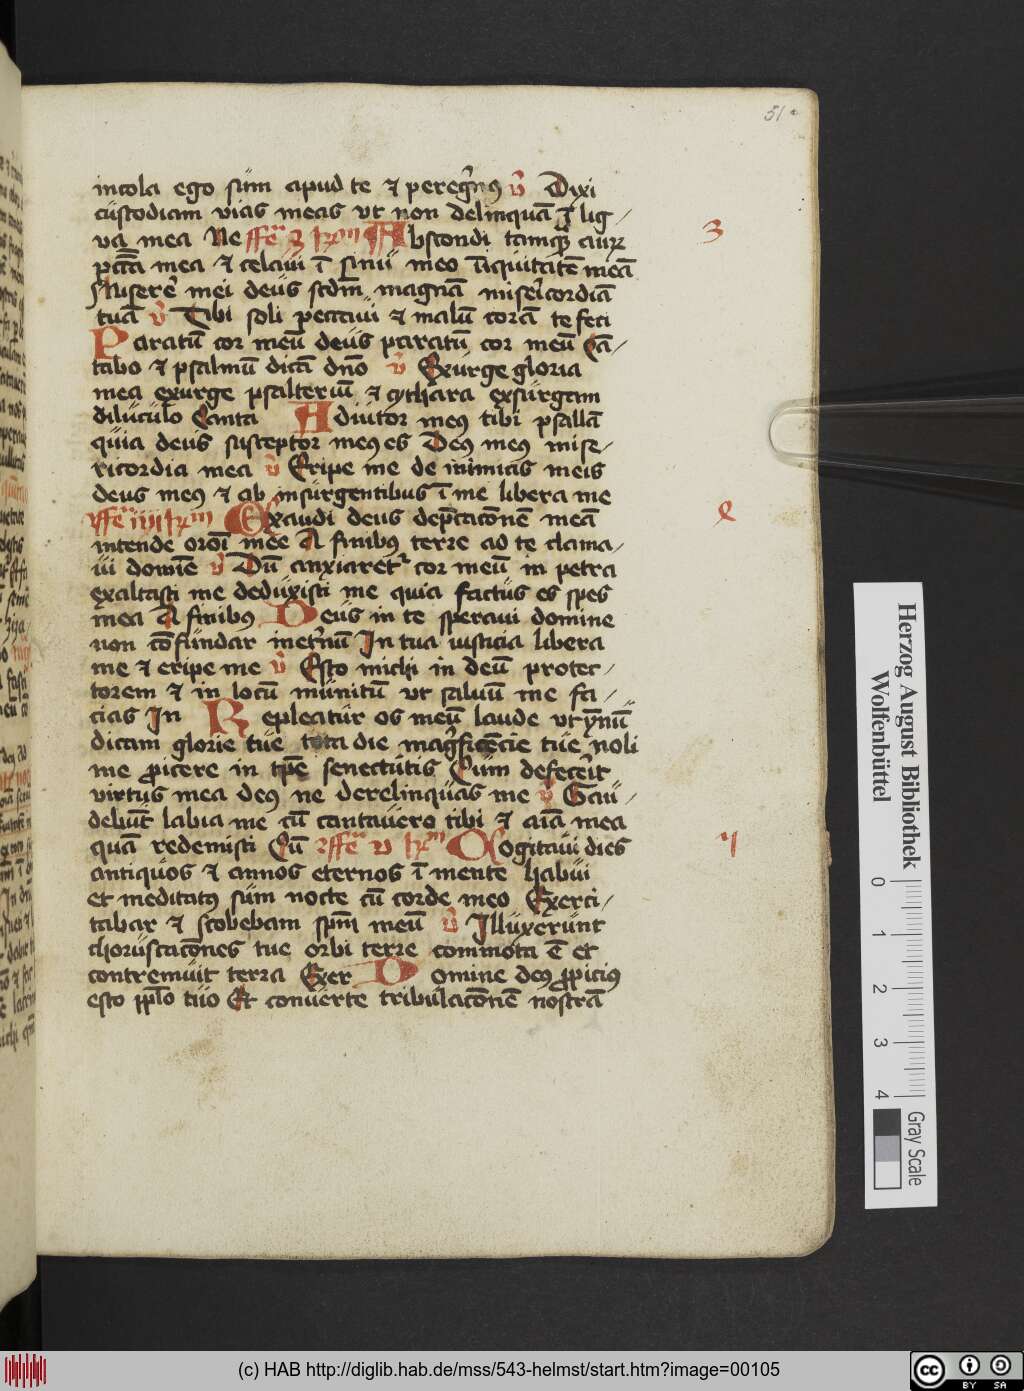 51
incola ego sum apud te ⁊ peregrinus v̓ Dixi
custodiam vias meas vt non delinquā ī lig /
va mea Ne ffe͞ 3 Abscondi tamqͣ auꝝ
pctā mea ⁊ celaui ī sinu meo īiquitatē meā
Miserer̄ mei deus scdm̄ magnā mise͛icordiā
3
tuā v̓ Tibi soli peccaui ⁊ malū corā te feci
Paratū cor meū deus paratū cor meū Cā /
tabo ⁊ psalmū dicā dn̄o v̓ Exurge gloria
mea exurge psalteriū ⁊ cythara exsurgam
diluculo Canta Adiutor meꝯ tibi psallā
quia deus susceptor meꝯ es Deꝯ meꝯ mise-
ricordia mea v̓ Eripe me de inimicis meis
deus meꝯ ⁊ ab insurgentibus ī me libera me
Exaudi deus dep͛cacōnē meā
intende oroī mee A finibꝯ terre ad te clama /
e
ui domīe v̓ Dū anxiaret͛ cor meū in petra
exaltasti me deduxisti me quia factus es spes
mea A finibꝯ Deus in te speraui domine
non cōfundar inet͛nū In tua iusticia libera
me ⁊ eripe me v̓ Esto michi in deū protec-
torem ⁊ in locū munitū vt saluū me fa /
cias In Repleatur os meū laude vt ymnū
dicam glorie tue tota die mag͛ficēcie tue noli
me ꝓicere in tpē senectutis Cum defecer̄it
virtus mea deꝯ ne derelinquas me v̓ Gau /
debūt labia me cū cantauero tibi ⁊ aīa mea
quā redemisti Cū Cogitaui dies
antiquos ⁊ annos eternos ī mente habui
et meditatꝯ sum nocte cū corde meo Exerci /
tabar ⁊ scobebam spm̄ meū v̓ Illuxerunt
choruscacōnes tue orbi terre commota ē et
contremuit terra Exer Domine deꝯ ꝓpicius
esto pplo tuo Et conuerte tribulacōnē nostrā
Herzog August Bibliothek
Wolfenbüttel
0
1
2
3
4
Gray Scale
(c) HAB http://diglib.hab.de/mss/543-helmst/start.htm?image=00105
cc
BY
SA